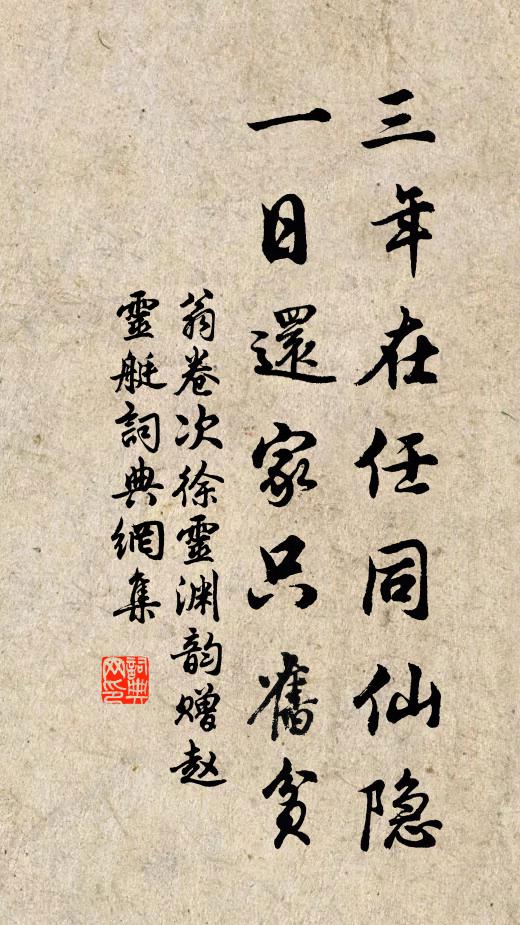 三年在任同仙隐
一日還家只舊貧
翁卷次徐靈渊韵赠赵
靈艇詞典網集
詞典
网印